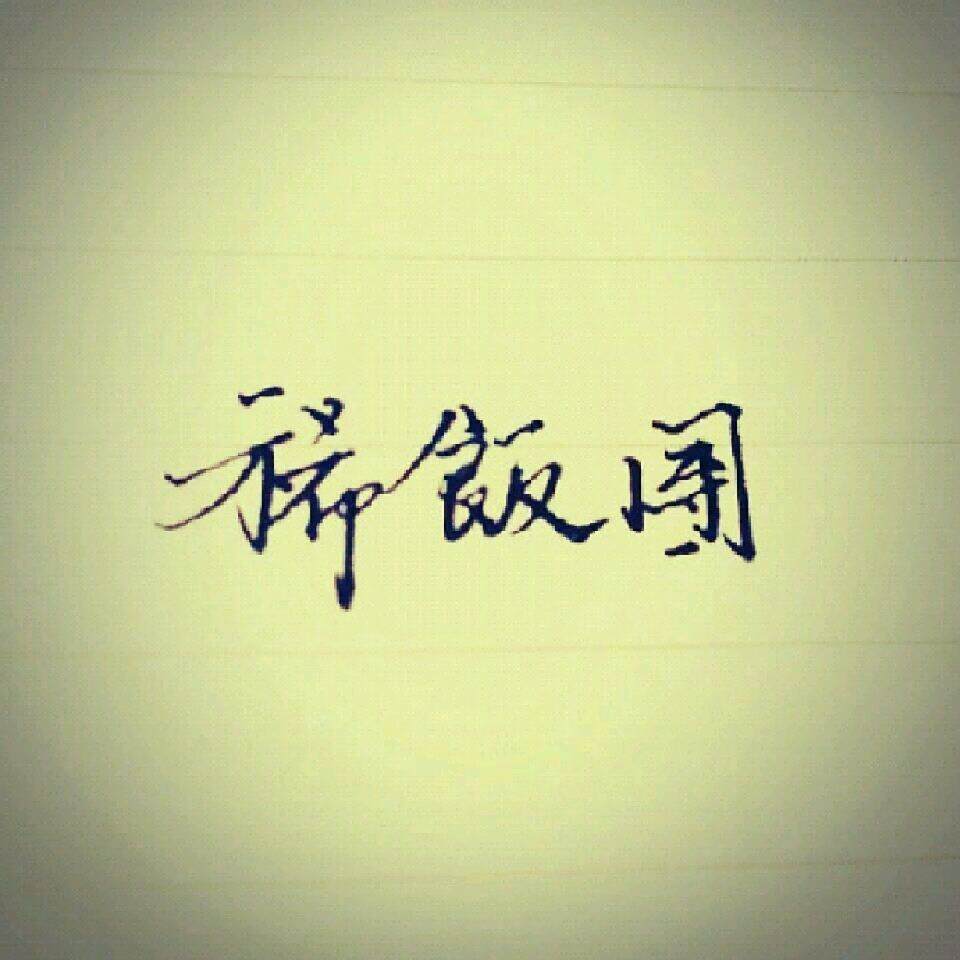 稀飯團